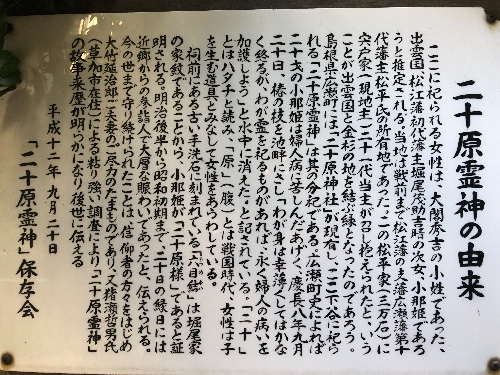 二十原霊神の由来
ここに祀られる女性は、大閤秀吉の小姓であった、
出雲国松江藩初代藩主堀尾茂助吉晴の次女、小那姫であろ
うと推定される。当地は戦前まで松江藩の支藩広瀬藩第十
代藩主松平氏の所有地であった。この松平家(三万石)に
宍戸家(現地主)二十一代当主が召し抱えられたと、いう
ことが出雲国と金杉の地を結ぶ縁となったのであろう。
島根県広瀬町には、「二十原神社」が現有し、ここ下谷に祀ら
れる「二十原霊神」は其の分祀である。広瀬町史によれば
二十才の小那姫は婦人病に苦しんだあげく、慶長八年九月
二十日、椿の枝を池畔にさし「わが身は幸薄くしてはかな
く終るが、わが霊を祀るものがあれば、永く婦人の病いを
加護しよう」と水中に消えた、と記されている。「二十」
とはハタチと読み、「原」(腹)とは戦国時代、女性は子
を生む道具とみなして女性をあらわしている。
祠前にある古い手洗石に刻まれている「六目結」は堀尾家
の家紋であることから、小那姫が「二十原様」であると証
明される。明治後半から昭和初期まで、二十日の縁日には
近郷からの参詣人で大層な賑わいであったと、伝えられる。
今の世まで守り続けられたことは、信仰者の方々をはじめ
大竹延治郎ご夫妻のご尽力のたまものであり、又猪瀬哲男氏
(草加市在住)による粘り強い調査により「二十原霊神」
の故事来歴が明らかになり後世に伝える
平成十二年 九月 二十日
「二十原霊神」保存会